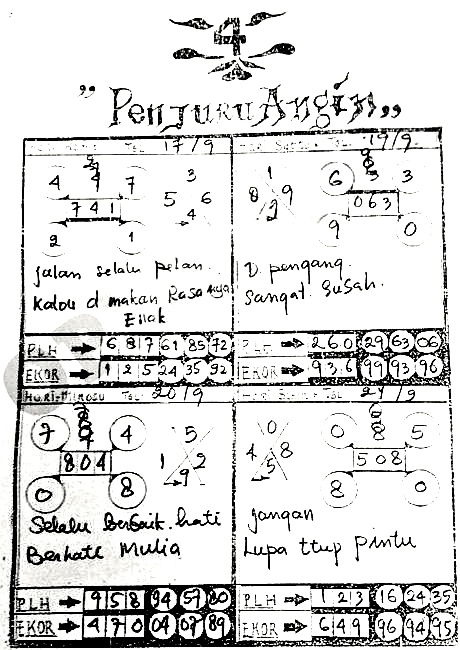 4
"Penjuru Angin"
TGL 17/9
4 7
741
2 1
3
5 6
4
Jalan selalu pelan
Kalou d makan Rasanya
Enak
PLH 6 8 7 61 85 72
EKOR 1 2 5 24 35 92
TGL 19/9
1
8 9
2
6 3 3
063
9 0
D. pengang
Sangat Susah.
PLH 2 6 0 29 63 06
EKOR 9 3 6 99 93 96
Hari-Minggu TGL 20/9
7 4
804
0 8
5
1 2
9
Selalu Berbaik hati
Berhati Mulia
PLH 9 5 8 94 57 80
EKOR 4 7 0 04 07 89
0
4 8
5
0 8 5
508
8 0
Jangan
Lupa ttup pintu
PLH 1 2 3 16 24 35
EKOR 6 4 9 96 94 95